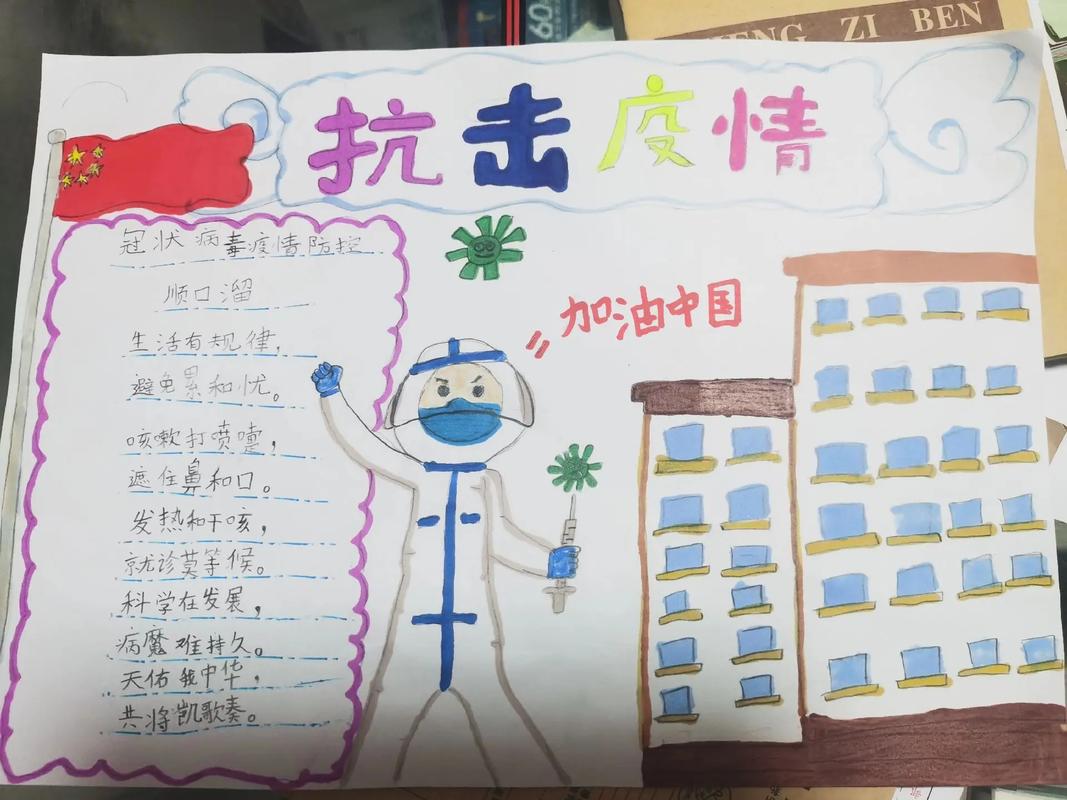 60
ENG ZI BEN
抗击疫情
冠状病毒疫情防控
顺口溜
生活有规律,
避免累和忧。
咳嗽打喷嚏,
遮住鼻和口。
发热和干咳,
就诊莫等候。
科学在发展,
病魔难持久。
天佑我中华,
共将凯歌奏。
加油中国